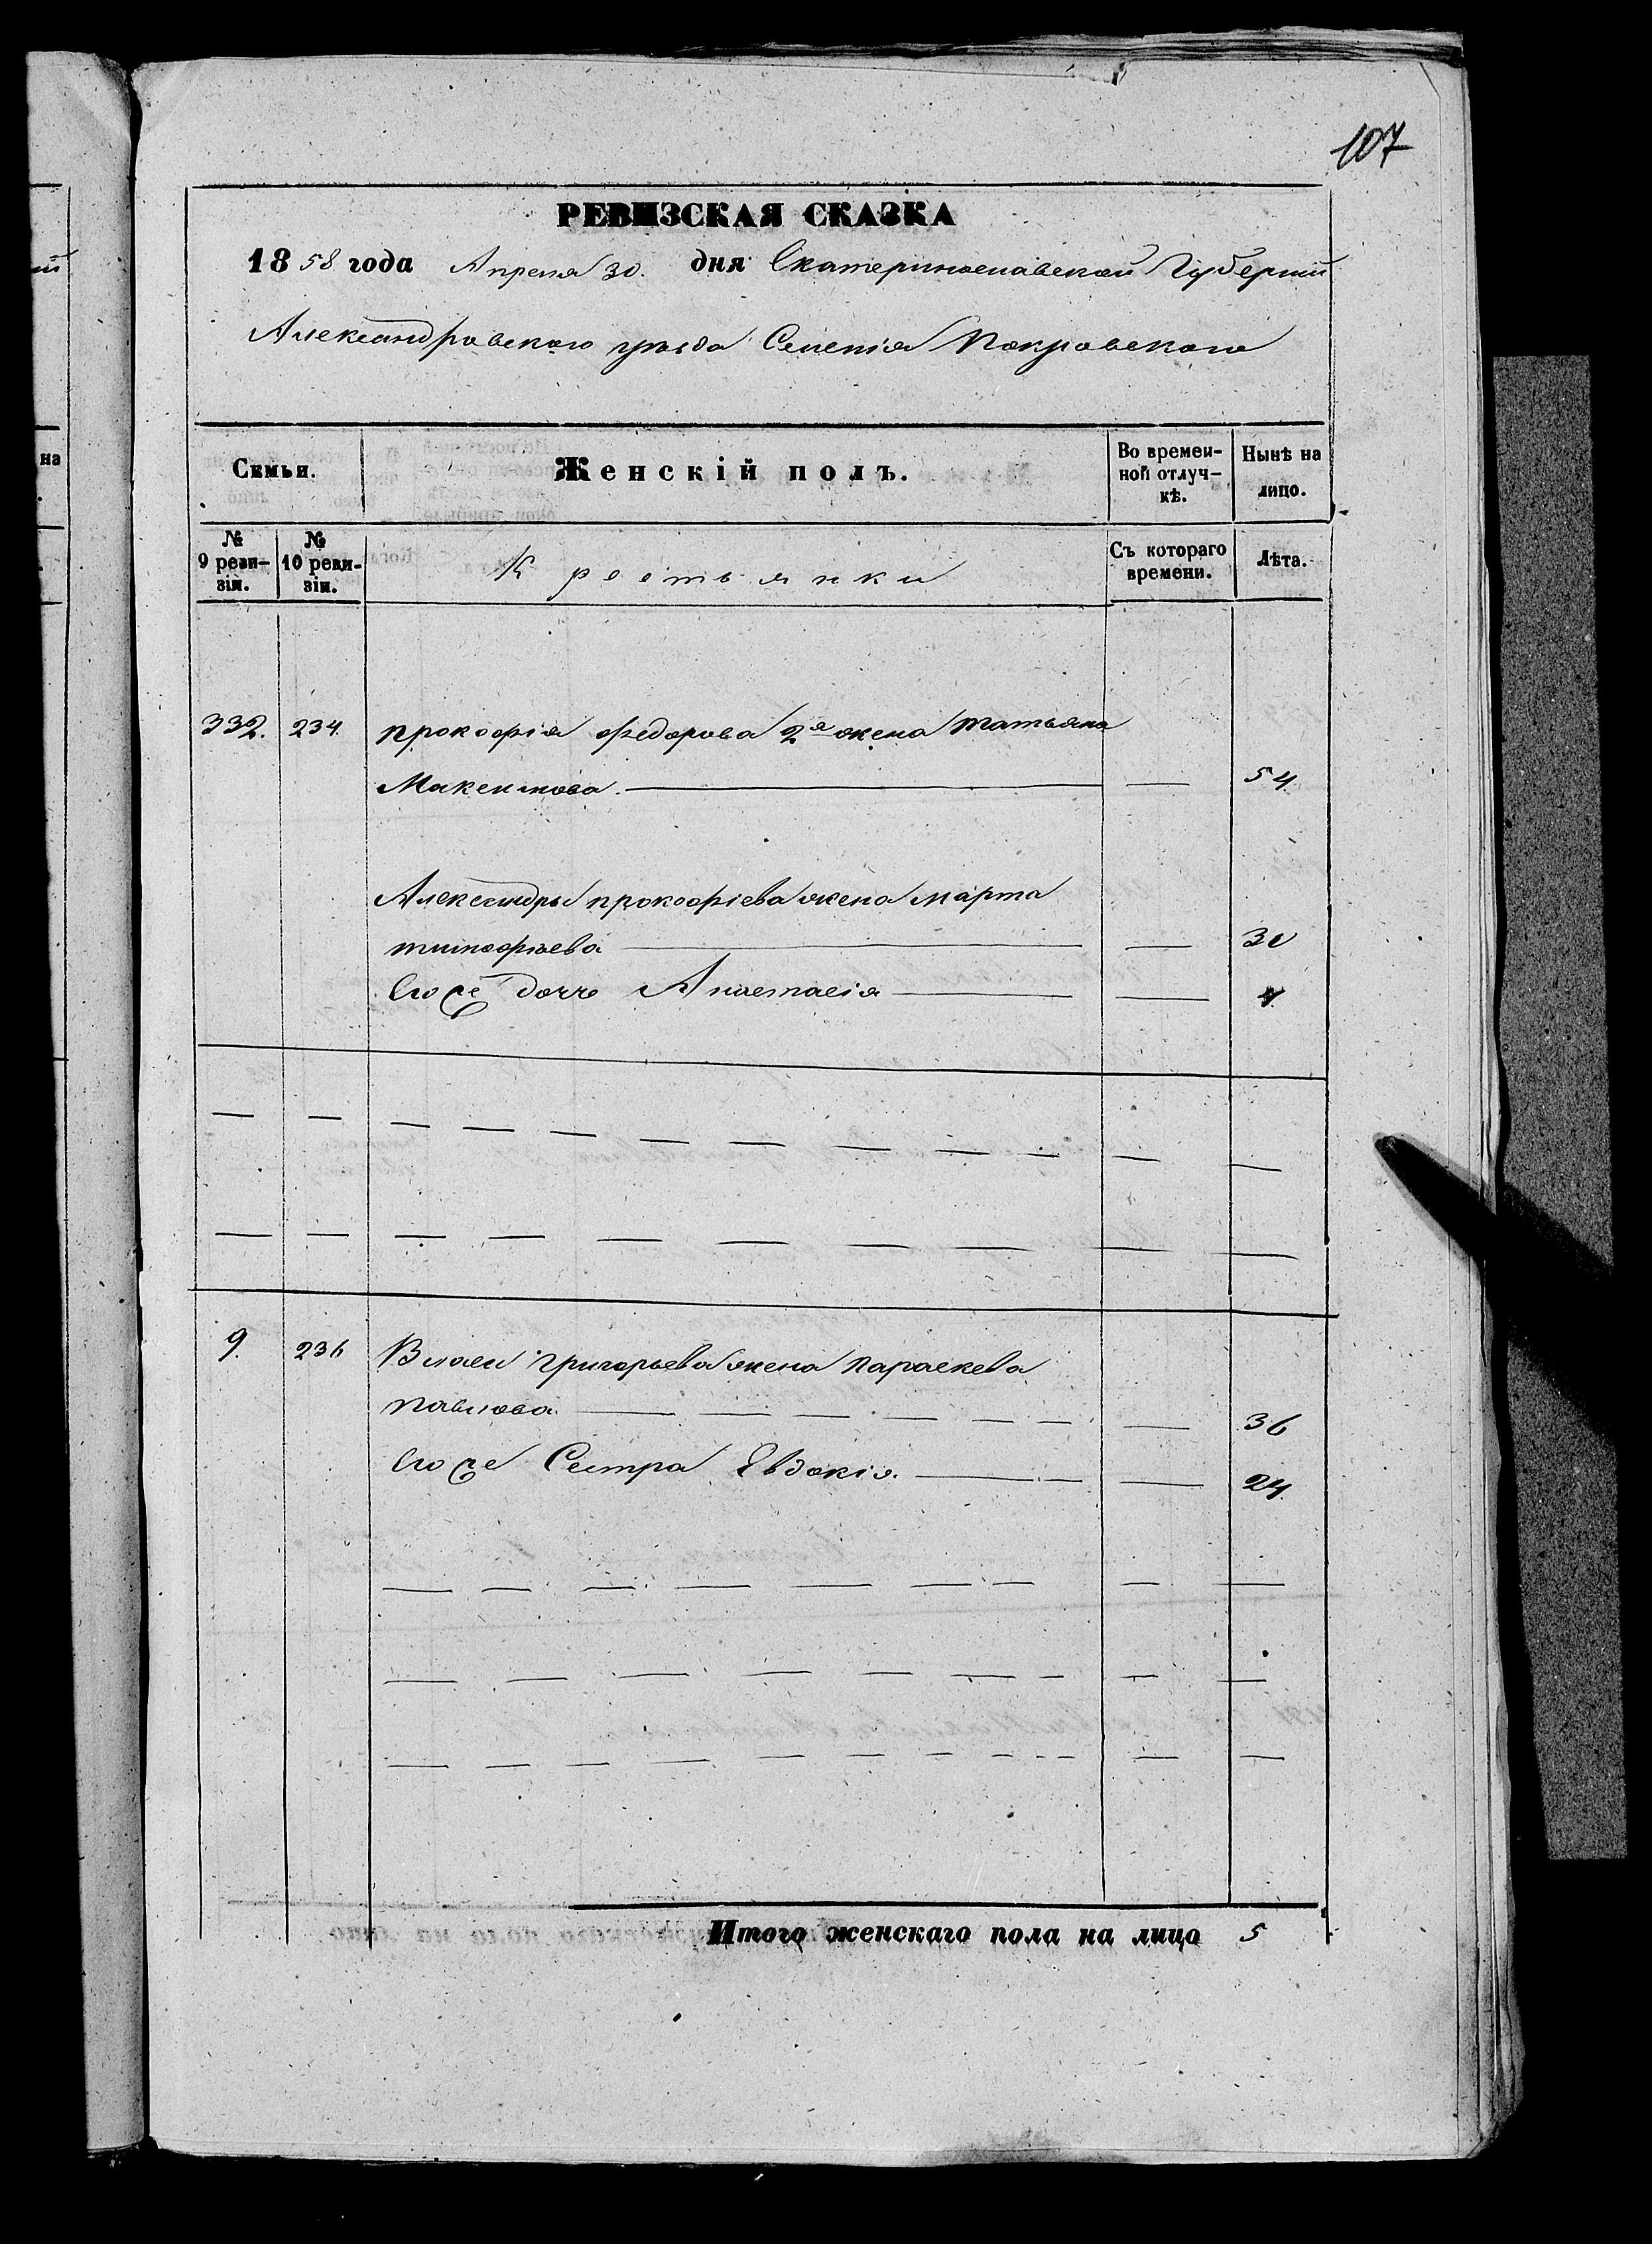 107
РЕВИЗСКАЯ СКАЗКА
1858 года Апреля 30. дня Екатеринославской Губерніи
Александровского уѣзда Селенія Покровского
Семьи. Женскій полъ. Во времен-ной отлуч-кѣ. Нынѣ на лицо.
№ 9 реви-зіи. № 10 реви-зіи. Крестьянки Съ котораго времени. Лѣта.
332. 234. Прокофія Федорова 2я жена Татьяна
Максимова. — — 54
Александры Прокофіева жена Марта
тимофѣева — — 30
Его же дочь Анастасія — — 4
9. 236 Власи Григорьева жена Параскева
Павлова. — — 36
Его же Сестра Евдокія. — — 24.
Итого женскаго пола на лицо 5
на